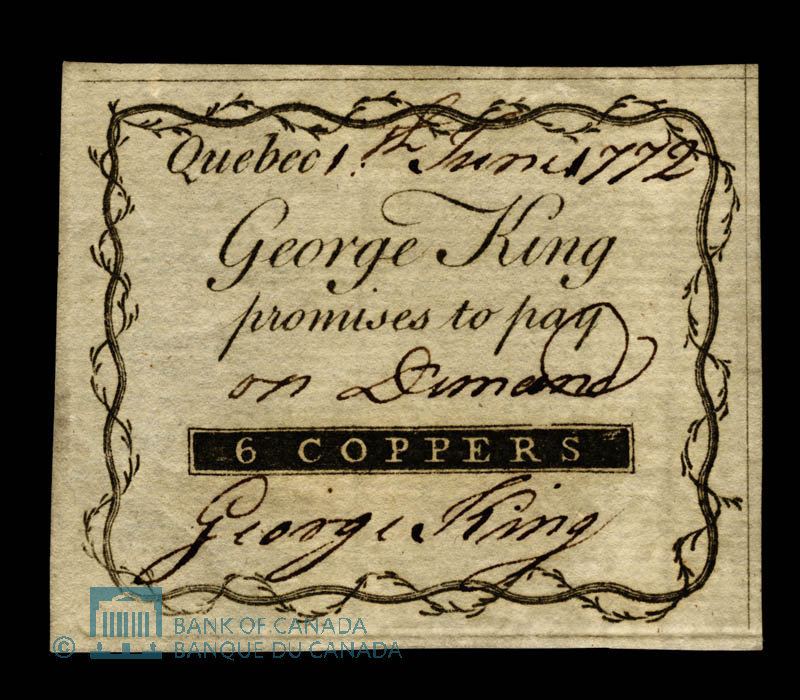 Quebec 1.th June 1772
George King
promises to pay
on Demand
6 COPPERS
George King
© BANK OF CANADA
BANQUE DU CANADA